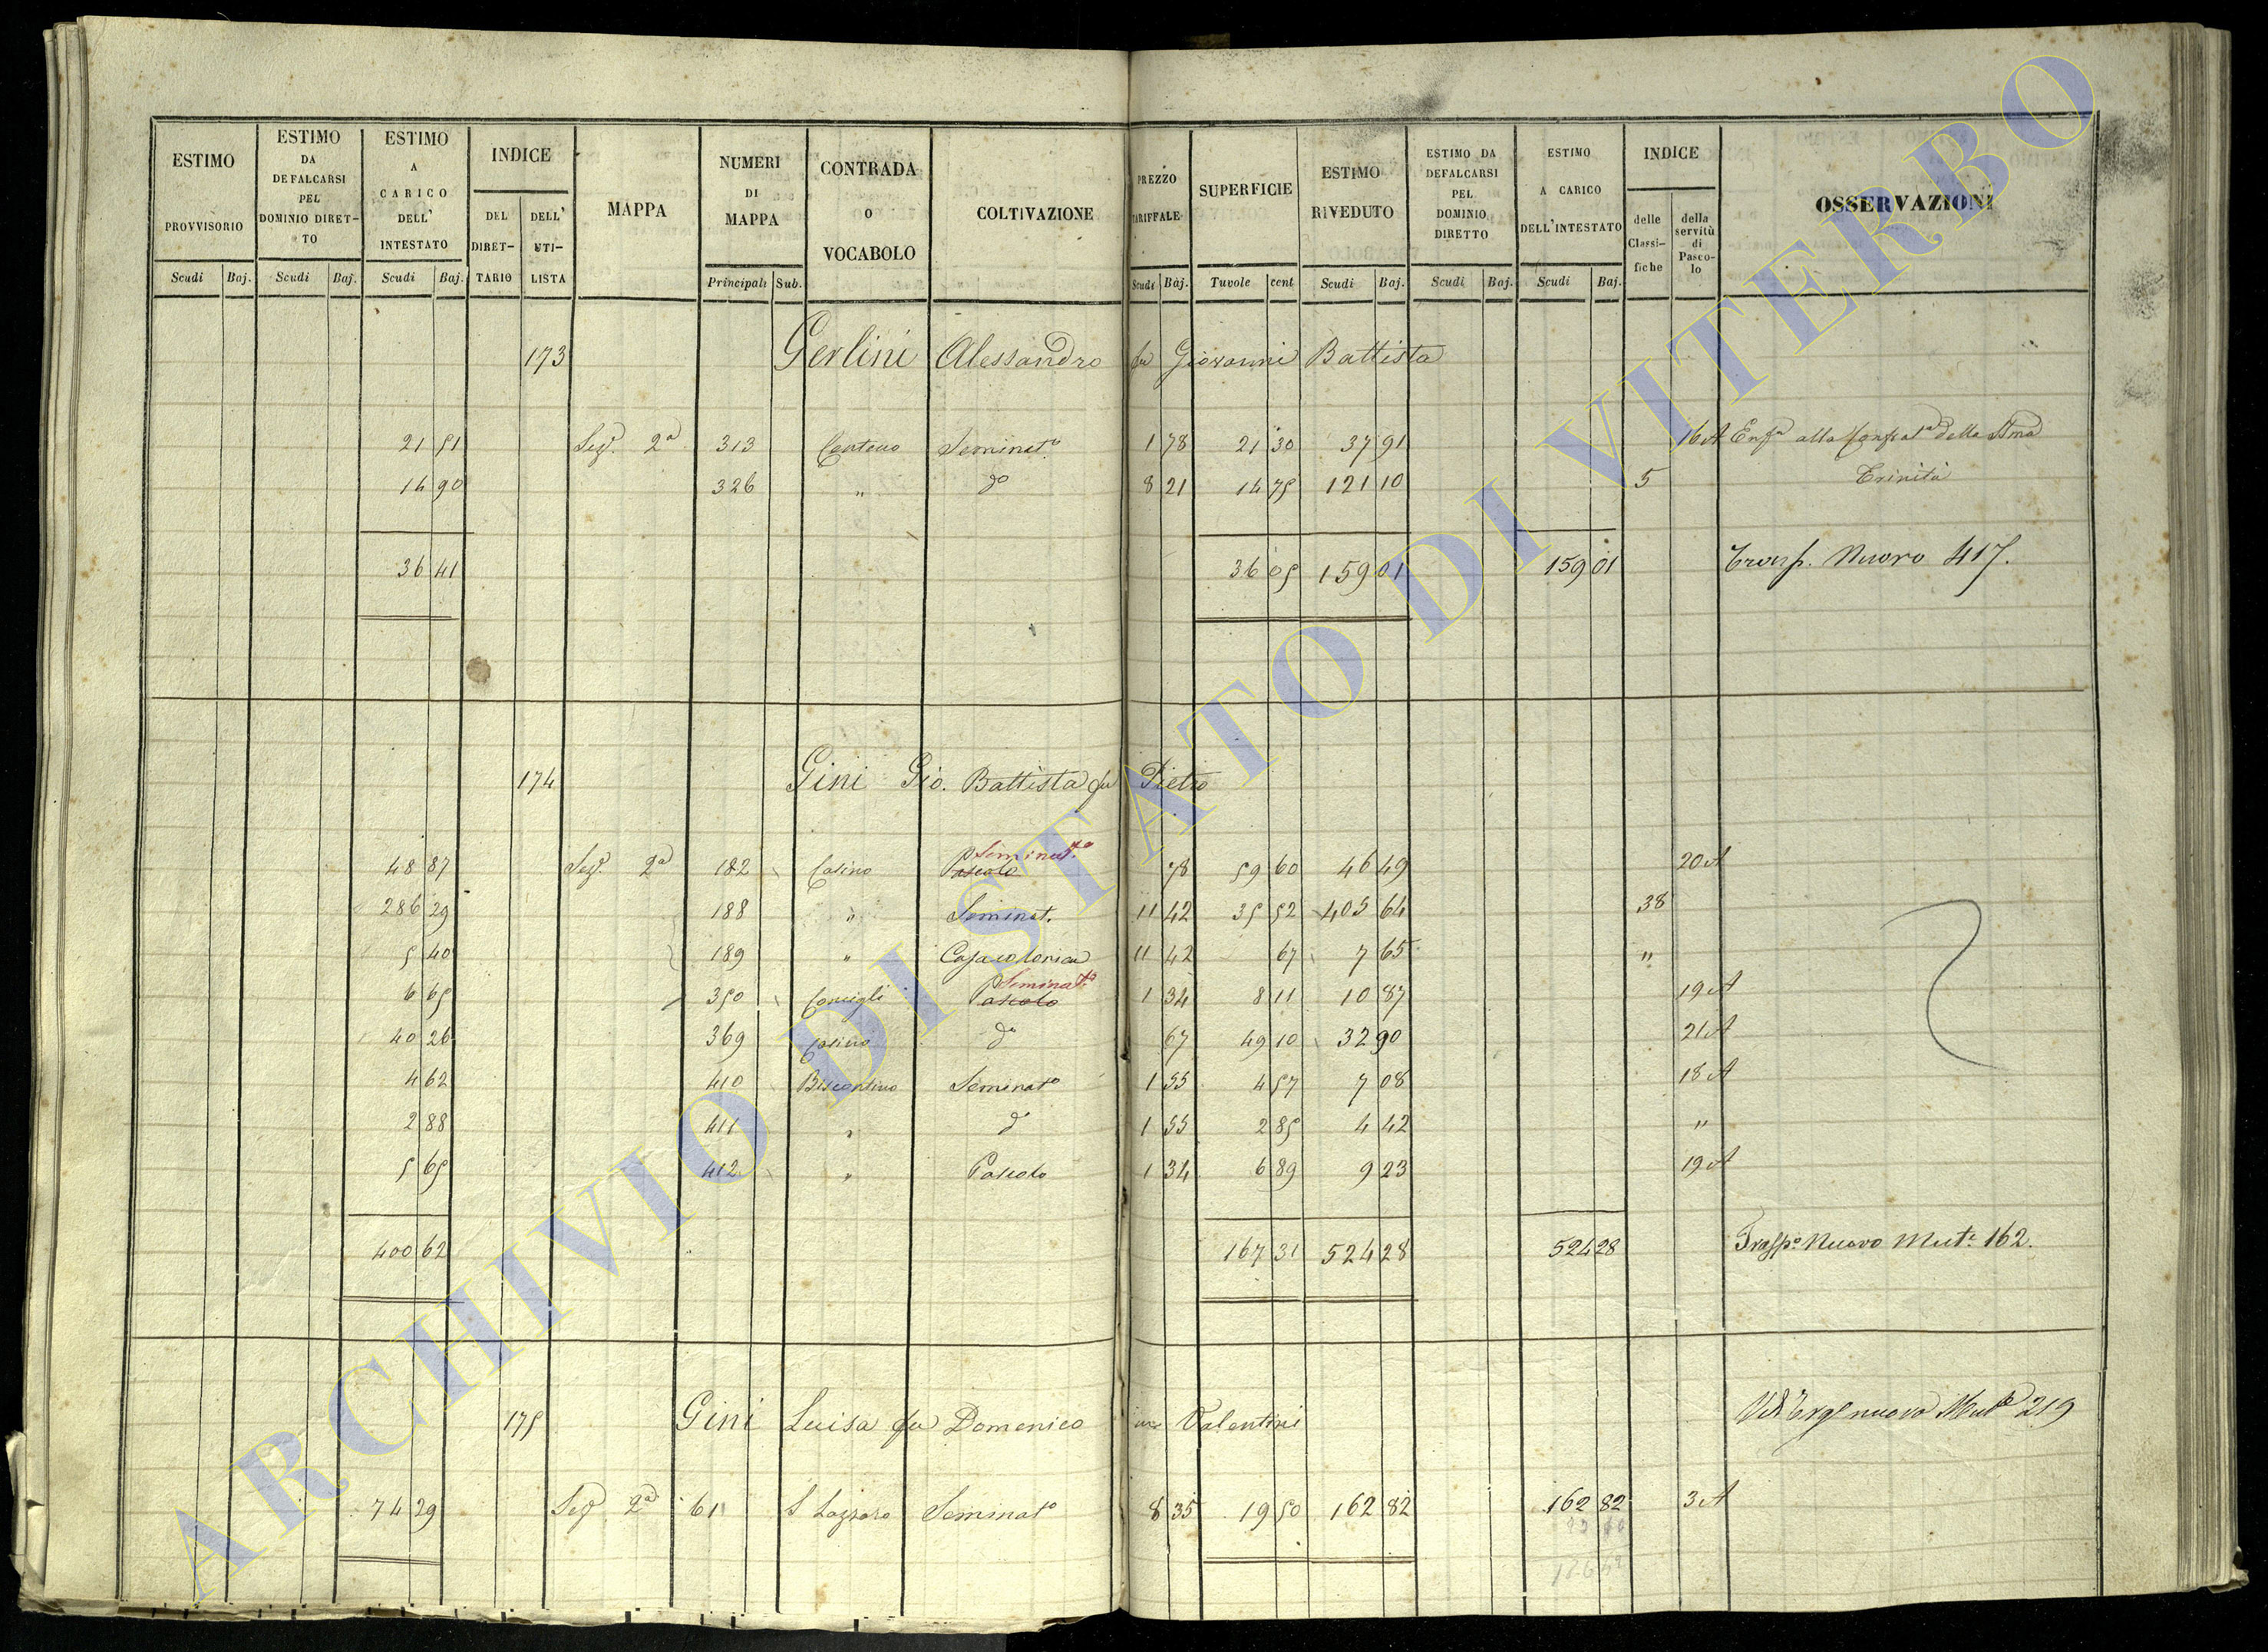 ESTIMO PROVVISORIO Scudi Baj.
ESTIMO DA DEFALCARSI PEL DOMINIO DIRETTO Scudi Baj.
ESTIMO A CARICO DELL' INTESTATO Scudi Baj.
INDICE DEL DIRETTARIO DELL' UTILISTA
MAPPA
NUMERI DI MAPPA Principali Sub.
CONTRADA O VOCABOLO
COLTIVAZIONE
PREZZO TARIFFALE Scudi Baj.
SUPERFICIE Tavole cent
ESTIMO RIVEDUTO Scudi Baj.
ESTIMO DA DEFALCARSI PEL DOMINIO DIRETTO Scudi Baj.
ESTIMO A CARICO DELL'INTESTATO Scudi Baj.
INDICE delle Classifiche della servitù di Pascolo
OSSERVAZIONI
173 Gerlini Alessandro fu Giovanni Battista
21 51 Sez.e 2a 313 Seminat.o 1 78 21 30 37 91 16 A Enf.a alla Confrat.a della SSma
14 90 326 " do 8 21 14 75 121 10 5 Trinità
36 41 36 05 159 01 159 01 Trasp. Nuovo 417.
174 Gini Gio. Battista fu Pietro
48 87 Sez.e 2a 182 Casino Pascolo Seminat.o 78 59 60 46 49 20 A
286 29 188 " Seminat. 11 42 35 52 405 64 38
5 40 189 " Casa colonica 11 42 67 7 65 "
6 65 350 Pascolo Seminat.o 1 34 8 11 10 87 19 A
40 26 369 Casino do 67 49 10 32 90 21 A
4 62 410 Seminat.o 1 55 4 57 7 08 18 A
2 88 411 " do 1 55 2 85 4 42 "
5 65 412 " Pascolo 1 34 6 89 9 23 19 A
400 62 167 31 524 28 524 28 Trasp.o Nuovo Mut.e 162.
175 Gini Luisa fu Domenico in Valentini nuovo Mut.e 219
74 29 Sez.e 2a 61 S Lazzaro Seminat.o 8 35 19 50 162 82 162 82 3 A
ARCHIVIO DI STATO DI VITERBO